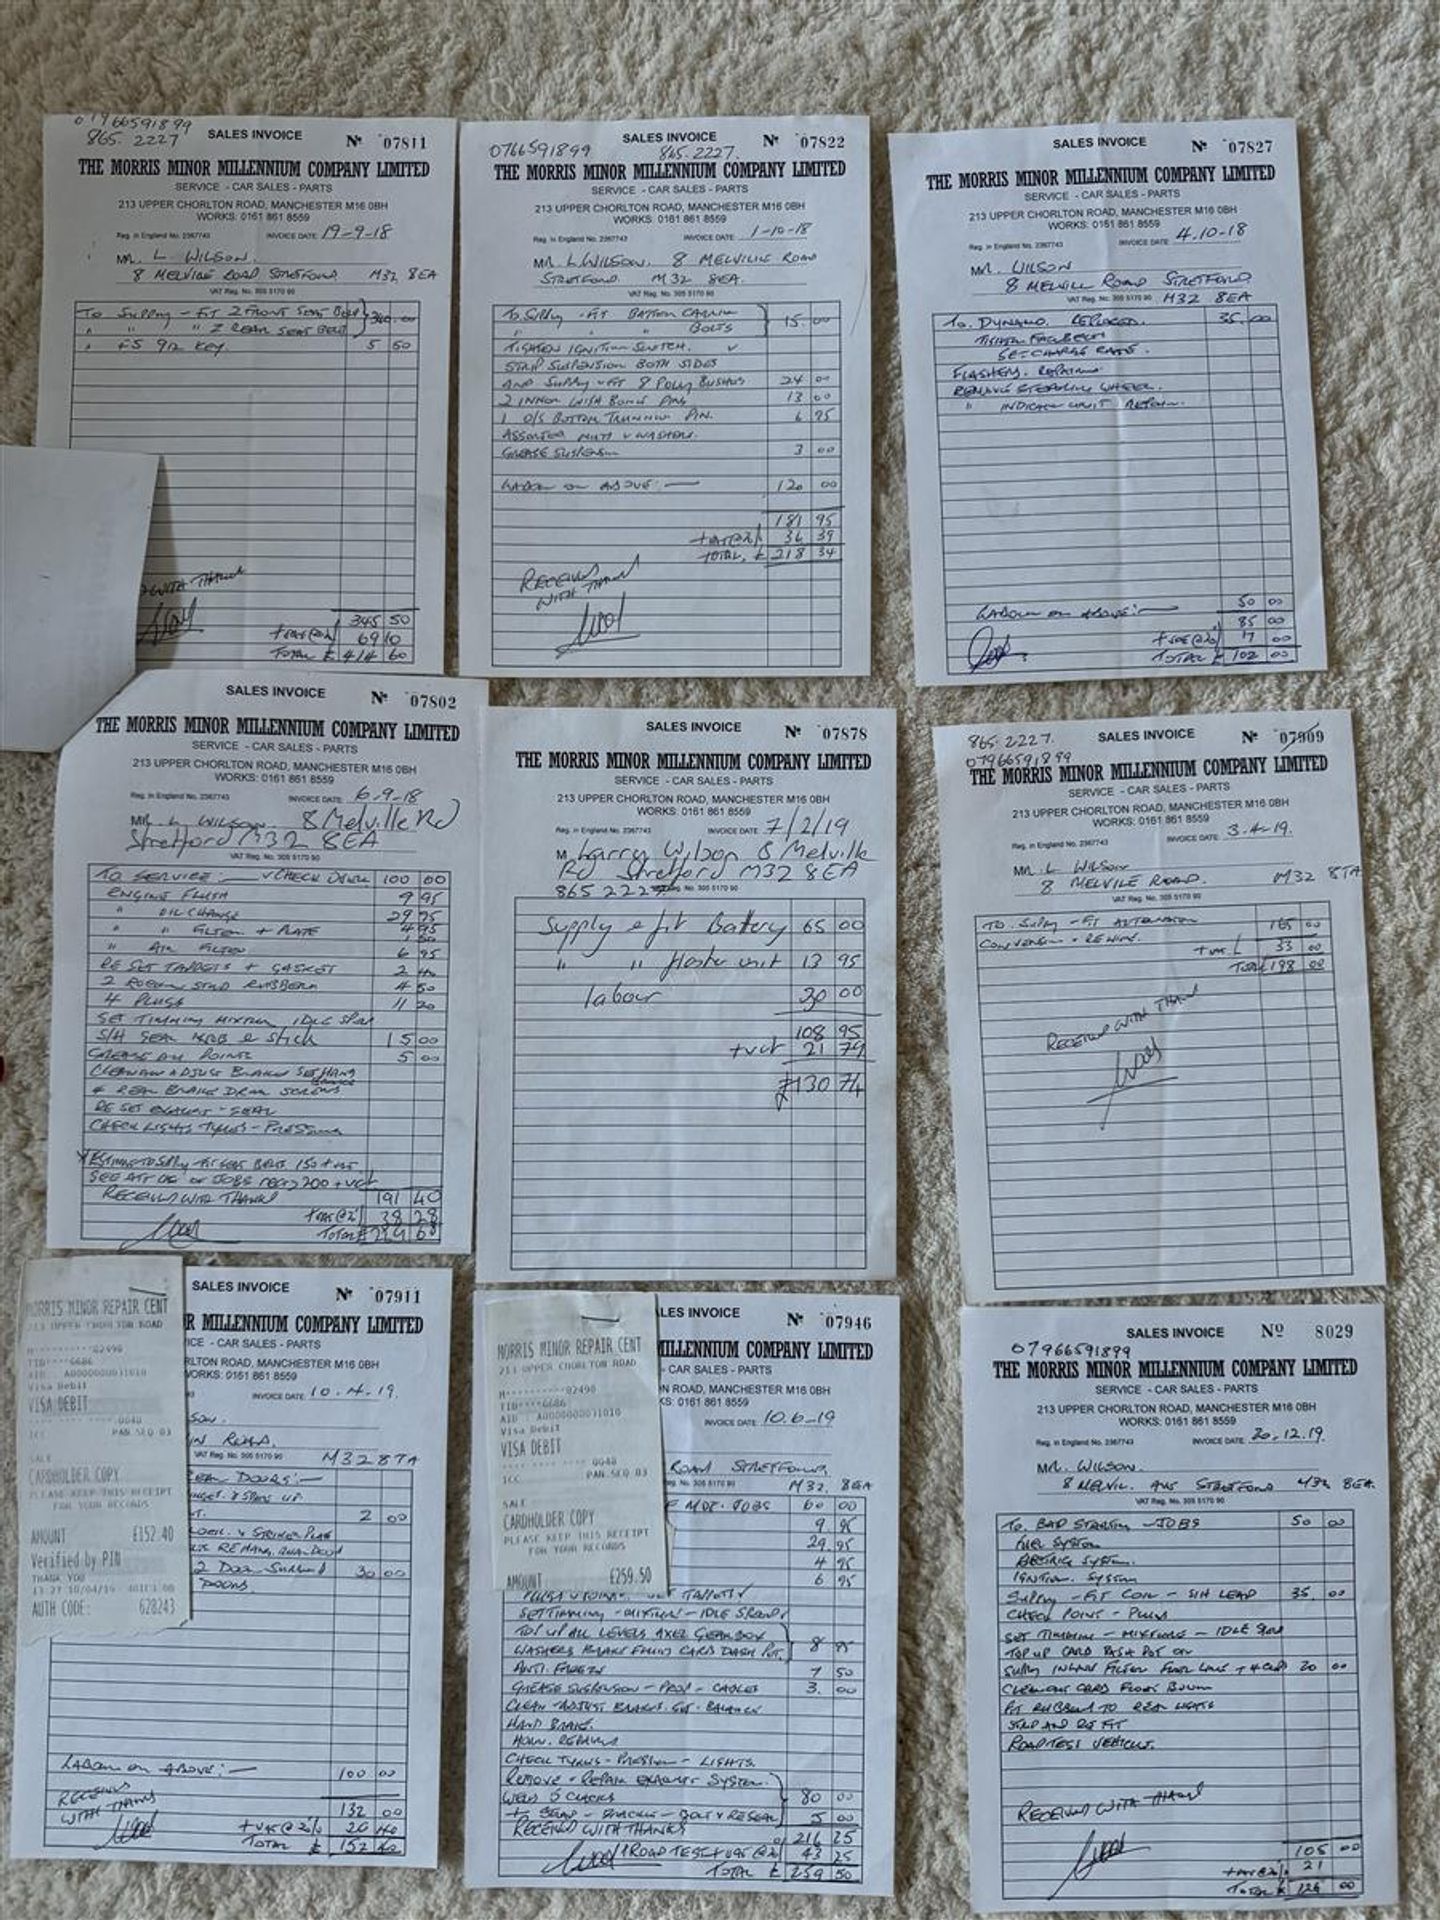 07966591899
865.2227
SALES INVOICE
Nº 07811
THE MORRIS MINOR MILLENNIUM COMPANY LIMITED
SERVICE - CAR SALES - PARTS
213 UPPER CHORLTON ROAD, MANCHESTER M16 0BH
WORKS: 0161 861 8559
Reg. in England No. 2367743
INVOICE DATE 19-9-18
MR. L WILSON.
8 MELVILE ROAD STRETFORD M32 8EA
VAT Reg. No. 305 5170 90
TO SUPPLY - FIT 2 FRONT SEAT BELT 340.00
" " " 2 REAR SEAT BELT
" FS 912 KEY. 5 50
WITH THANKS
345 50
69 10
TOTAL £ 414 60
SALES INVOICE
Nº 07822
0766591899 865-2227.
THE MORRIS MINOR MILLENNIUM COMPANY LIMITED
SERVICE - CAR SALES - PARTS
213 UPPER CHORLTON ROAD, MANCHESTER M16 0BH
WORKS: 0161 861 8559
Reg. in England No. 2367743
INVOICE DATE 1-10-18
MR L. WILSON. 8 MELVILLE ROAD
STRETFORD. M32 8EA.
VAT Reg. No. 305 5170 90
TO SUPPLY - FIT 15.00
" " " BOLTS
TIGHTEN IGNITION SWITCH.
STRIP SUSPENSION BOTH SIDES
AND SUPPLY - FIT 8 POLLY BUSHES 24 00
2 INNER WISH BONE PINS 13 00
1 O/S BOTTOM TRUNNION PIN. 6 95
ASSORTED NUTS & WASHERS.
GREASE SUSPENSION 3 00
LABOUR ON ABOVE:— 120 00
181 95
36 39
TOTAL. £ 218 34
RECEIVED
WITH THANKS
SALES INVOICE
Nº 07827
THE MORRIS MINOR MILLENNIUM COMPANY LIMITED
SERVICE - CAR SALES - PARTS
213 UPPER CHORLTON ROAD, MANCHESTER M16 0BH
WORKS: 0161 861 8559
Reg. in England No. 2367743
INVOICE DATE 4.10-18
MR. WILSON
8 MELVILL ROAD STRETFORD
VAT Reg. No. 305 5170 90 M32 8EA
TO. DYNAMO. REPLACED. 35.00
TIGHTEN FANBELT
SET CHARGE RATE.
FLASHERS. REPAIRING
REMOVE STEERING WHEEL.
" INDICATOR UNIT REPAIR.
LABOUR ON ABOVE:— 50 00
85 00
17 00
TOTAL £ 102 00
SALES INVOICE
Nº 07802
THE MORRIS MINOR MILLENNIUM COMPANY LIMITED
SERVICE - CAR SALES - PARTS
213 UPPER CHORLTON ROAD, MANCHESTER M16 0BH
WORKS: 0161 861 8559
Reg. in England No. 2367743
INVOICE DATE 6.9-18
MR. L WILSON. 8 Melville Rd
Stretford M32 8EA
VAT Reg. No. 305 5170 90
TO SERVICE: CHECK OVER 100 00
ENGINE FLUSH 9 95
" OIL CHANGE 29 95
" " FILTER + PLATE 4 95
" AIR FILTER 6 95
RE SET TAPPETS + GASKET 2 40
2 ROCKER STUD RUBBERS 4 50
4 PLUGS 11 20
SET TIMMING MIXTURE IDLE SPEED
S/H GEAR KNOB & Stick 15 00
GREASE ALL POINTS 5 00
CLEAN AND ADJUST BRAKES SET HAND
4 REAR BRAKE DRUM SCREWS
RE SET EXHAUST - SEAL
CHECK LIGHTS TYRES - PRESSURE
ESTIMATE TO SUPPLY - FIT SEAT BELTS 150 + VAT
RECEIVED WITH THANKS 191 40
38 28
TOTAL £ 229 68
SALES INVOICE
Nº 07878
THE MORRIS MINOR MILLENNIUM COMPANY LIMITED
SERVICE - CAR SALES - PARTS
213 UPPER CHORLTON ROAD, MANCHESTER M16 0BH
WORKS: 0161 861 8559
Reg. in England No. 2367743
INVOICE DATE 7/2/19
M Larry Wilson 8 Melville
Rd Stretford M32 8EA
865 2227 Reg. No. 305 5170 90
Supply & fit Battery 65 00
" " flasher unit 13 95
labour 30 00
108 95
+vat 21 79
£130 74
865-2227.
07966591899
SALES INVOICE
Nº 07909
THE MORRIS MINOR MILLENNIUM COMPANY LIMITED
SERVICE - CAR SALES - PARTS
213 UPPER CHORLTON ROAD, MANCHESTER M16 0BH
WORKS: 0161 861 8559
Reg. in England No. 2367743
INVOICE DATE 3.4-19.
MR L WILSON
8 MELVILE ROAD. M32 8TA
VAT Reg. No. 305 5170 90
TO SUPPLY - FIT ALTERNATOR 165 00
CONVERSION + REWIRE.
+ VAT 33 00
TOTAL 198 00
RECEIVED WITH THANKS
MORRIS MINOR REPAIR CENT
213 UPPER CHORLTON ROAD
M**********02490
TID****6686
AID: A0000000031010
Visa Debit
VISA DEBIT
0048
ICC PAN SEQ 03
SALE
CARDHOLDER COPY
PLEASE KEEP THIS RECEIPT
FOR YOUR RECORDS
AMOUNT £152.40
Verified by PIN
THANK YOU
13:27 10/04/19
AUTH CODE: 628243
SALES INVOICE
Nº 07911
R MILLENNIUM COMPANY LIMITED
ICE - CAR SALES - PARTS
RLTON ROAD, MANCHESTER M16 0BH
WORKS: 0161 861 8559
INVOICE DATE 10.4.19.
SON.
ROAD.
VAT Reg. No. 305 5170 90 M32 8TA
REAR DOORS:—
2 00
LOCK. & STRIKER PLATE
2 DOOR 30 00
DOORS.
LABOUR ON ABOVE:— 100 00
RECEIVED
WITH THANKS
132 00
+ VAT @ 20% 20 40
TOTAL £ 152 40
MORRIS MINOR REPAIR CENT
213 UPPER CHORLTON ROAD
M**********02490
TID****6686
AID: A0000000031010
Visa Debit
VISA DEBIT
0048
ICC PAN SEQ 03
SALE
CARDHOLDER COPY
PLEASE KEEP THIS RECEIPT
FOR YOUR RECORDS
AMOUNT £259.50
LES INVOICE
Nº 07946
MILLENNIUM COMPANY LIMITED
- CAR SALES - PARTS
N ROAD, MANCHESTER M16 0BH
KS: 0161 861 8559
INVOICE DATE 10.6-19
ROAD STRETFORD
Reg. No. 305 5170 90 M32, 8EA
MOT. JOBS 60 00
9 95
29 95
4 95
6 95
SET TIMMING - MIXTURE - IDLE SPEED
TOP UP ALL LEVELS AXEL GEARBOX
WASHERS BRAKE FLUID CARB DASH POT. 8 95
ANTI-FREEZE 7 50
GREASE SUSPENSION - PROP - CABLES 3.00
CLEAN - ADJUST BRAKES. SET - BALANCE
HAND BRAKE.
HORN. REPAIRS
CHECK TYRES - PRESSURE - LIGHTS.
REMOVE - REPAIR EXHAUST SYSTEM.
WELD 5 CRACKS 80 00
+ STRAP - SHACKLE - BOLT & RESEAL 5 00
RECEIVED WITH THANKS 216 25
ROAD TEST + VAT @ 20 43 25
TOTAL £ 259 50
SALES INVOICE
Nº 8029
07966591899
THE MORRIS MINOR MILLENNIUM COMPANY LIMITED
SERVICE - CAR SALES - PARTS
213 UPPER CHORLTON ROAD, MANCHESTER M16 0BH
WORKS: 0161 861 8559
Reg. in England No. 2367743
INVOICE DATE 20.12.19.
MR. WILSON.
8 MELVIL. AVE STRETFORD M32 8EA.
VAT Reg. No. 305 5170 90
TO. BAD STARTING - JOBS 50 00
FUEL SYSTEM
ELECTRICS SYSTEM.
IGNITION. SYSTEM
SUPPLY - FIT COIL - S/H LEAD 35. 00
CHECK POINT - PLUGS
SET TIMMING - MIXTURE - IDLE SPEED
TOP UP CARB DASH POT OIL
SUPPLY INLINE FILTER FUEL LINE + 4 CLIPS 20 00
CLEAN OUT CARB FLOAT BOWL
FIT RUBBERS TO REAR LIGHTS
STRIP AND RE FIT
ROAD TEST VEHICLE.
RECEIVED WITH THANKS
105 00
21
TOTAL £ 126 00